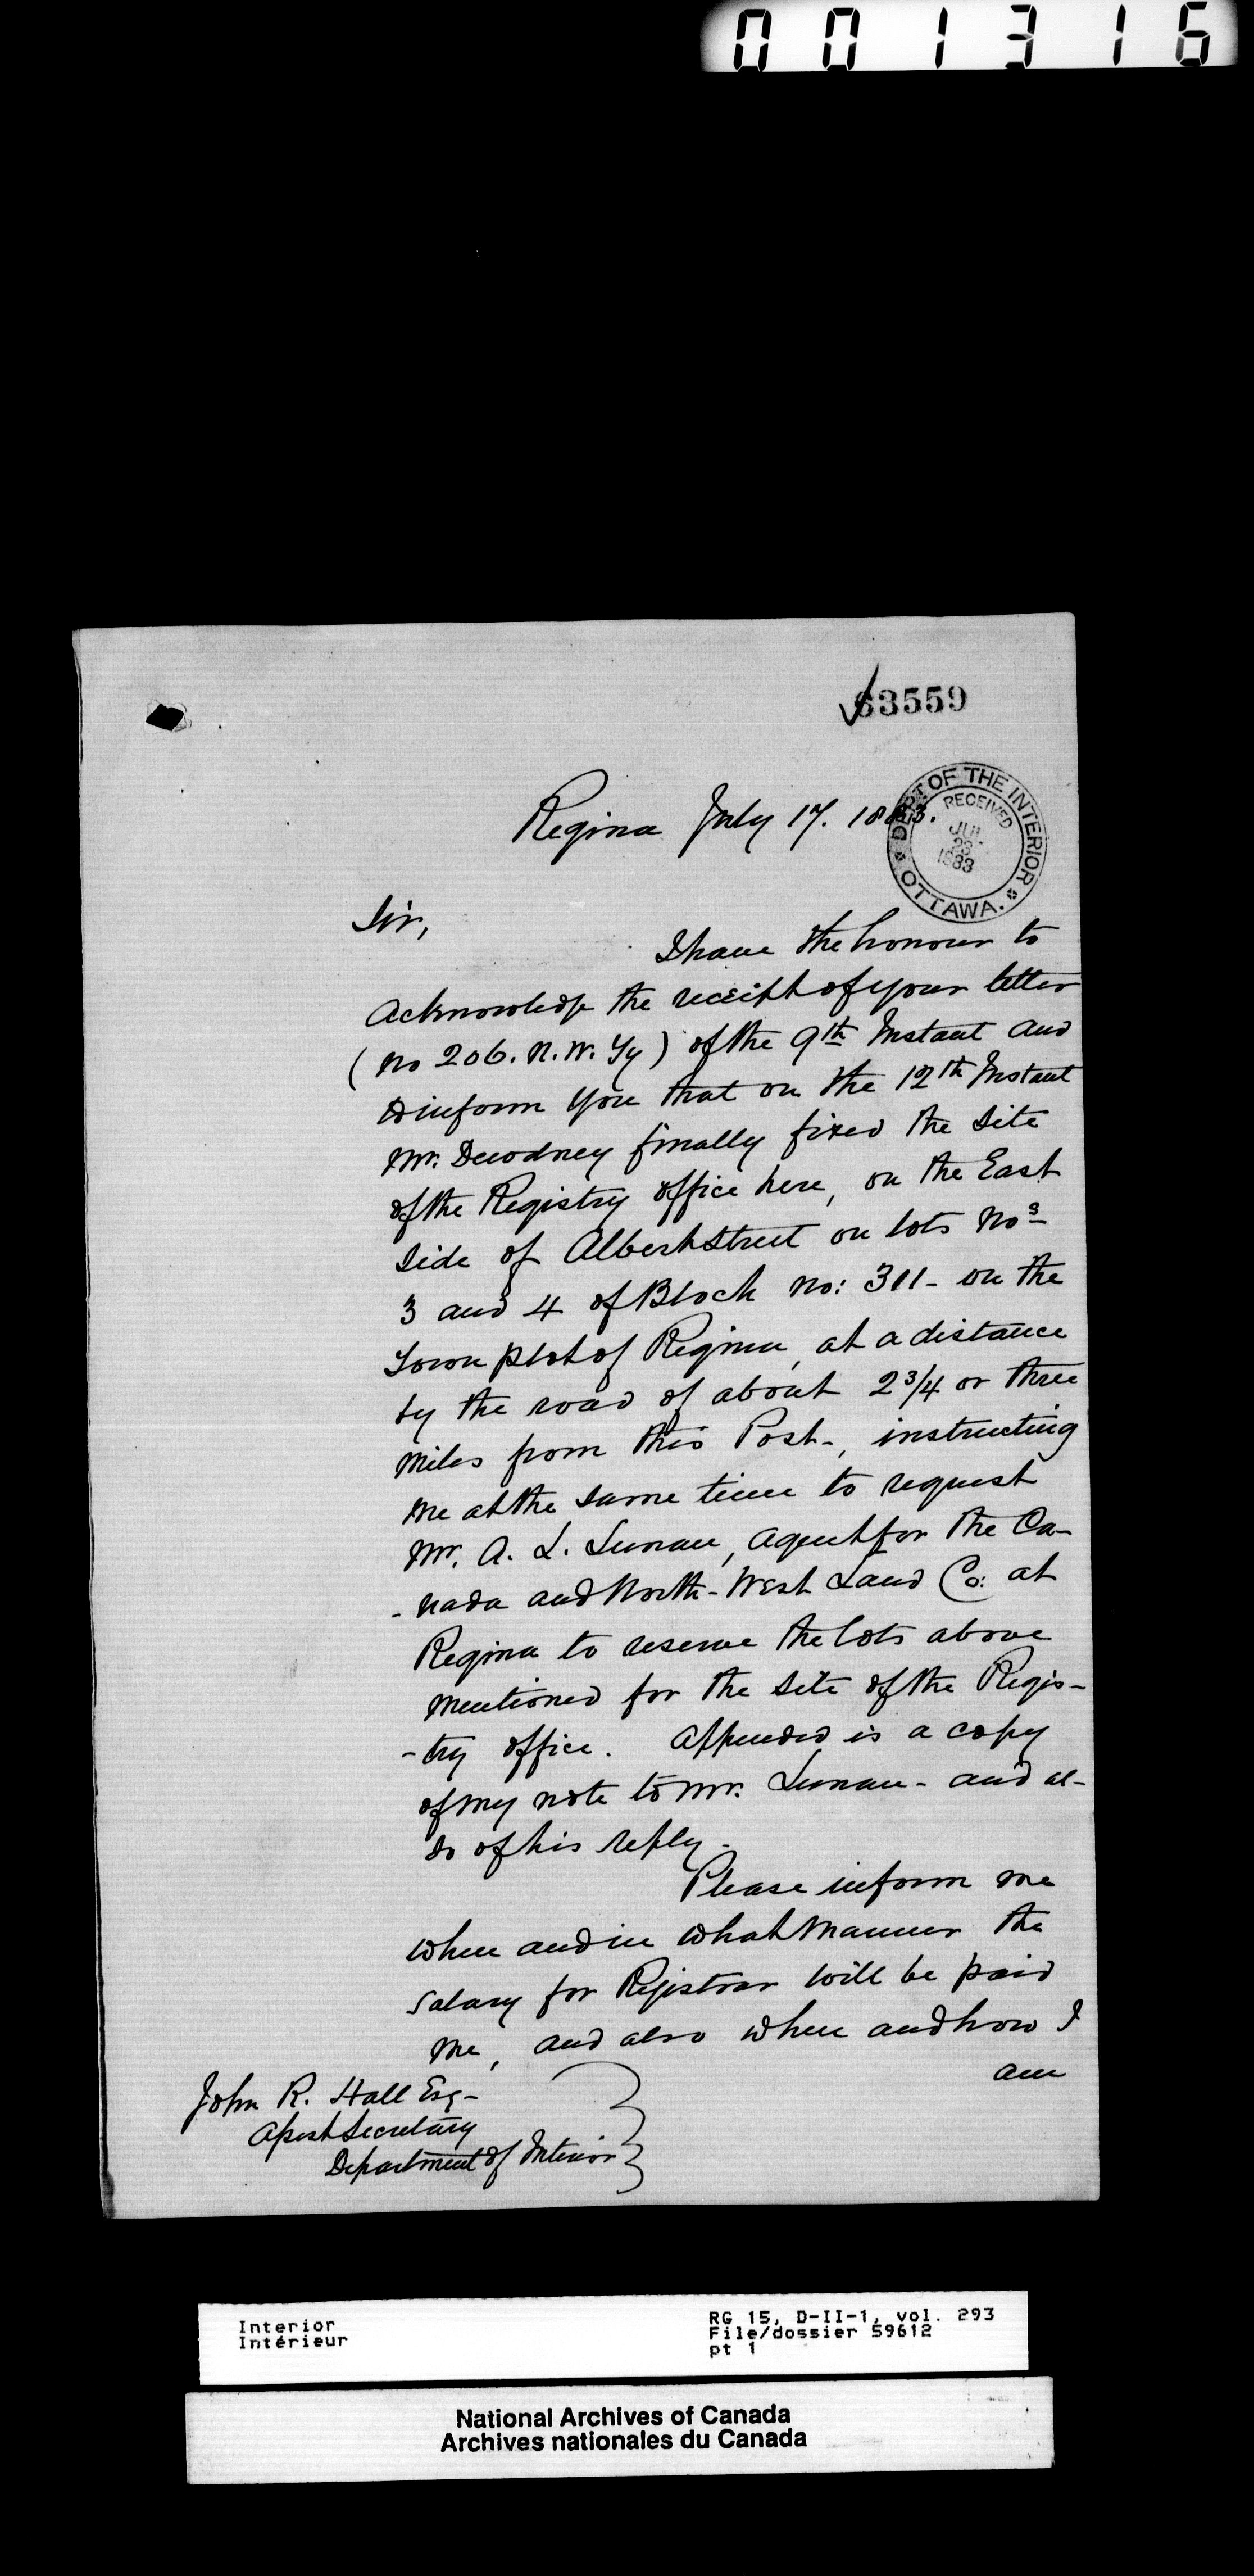 001316
63559
Regina July 17. 1883.
DEPT OF THE INTERIOR
RECEIVED
JUL
23
1883
OTTAWA.
Sir,
I have the honour to
acknowledge the receipt of your letter
(No 206. N. W. Ty) of the 9th Instant and
to inform you that on the 12th Instant
Mr. Dewdney finally fixed the site
of the Registry office here, on the East
side of Albert Street on lots Nos
3 and 4 of Block No: 311 - on the
Town plot of Regina, at a distance
by the road of about 2 3/4 or three
miles from this Post -, instructing
me at the same time to request
Mr. A. L. Lunau, agent for the Ca-
-nada and North-West Land Co: at
Regina to reserve the lots above
mentioned for the site of the Regis-
-try office. Appended is a copy
of my note to Mr. Lunau - and al-
so of his reply -
Please inform me
when and in what manner the
salary for Registrar will be paid
me, and also when and how I
am
John R. Hall Esq -
Assist Secretary
Department of Interior
Interior
Intérieur
RG 15, D-II-1, vol. 293
File/dossier 59612
pt 1
National Archives of Canada
Archives nationales du Canada